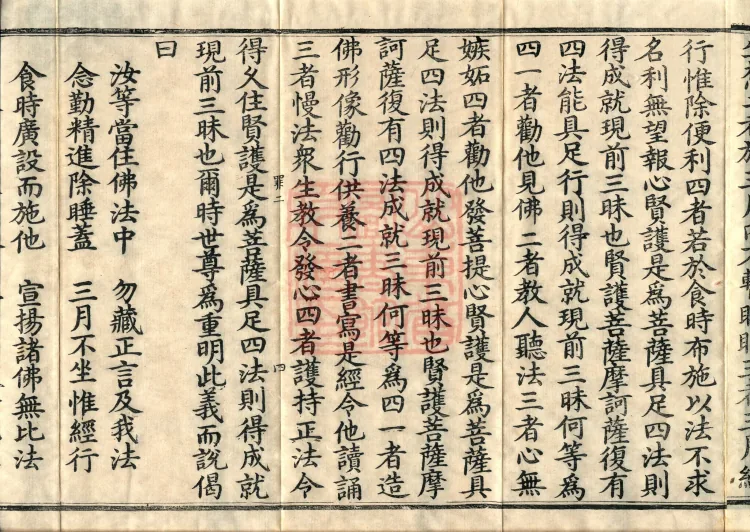 行惟除便利四者若於食時布施以法不求
名利無望報心賢護是爲菩薩具足四法則
得成就現前三昧也賢護菩薩摩訶薩復有
四法能具足行則得成就現前三昧何等爲
四一者勸他見佛二者教人聽法三者心無
嫉妬四者勸他發菩提心賢護是爲菩薩具
足四法則得成就現前三昧也賢護菩薩摩
訶薩復有四法成就三昧何等爲四一者造
佛形像勸行供養二者書寫是經令他讀誦
三者慢法衆生教令發心四者護持正法令
得久住賢護是爲菩薩具足四法則得成就
罪二 四
現前三昧也爾時世尊爲重明此義而說偈
曰
汝等當住佛法中 勿藏正言及我法
念勤精進除睡蓋 三月不坐惟經行
食時廣設而施他 宣揚諸佛無比法